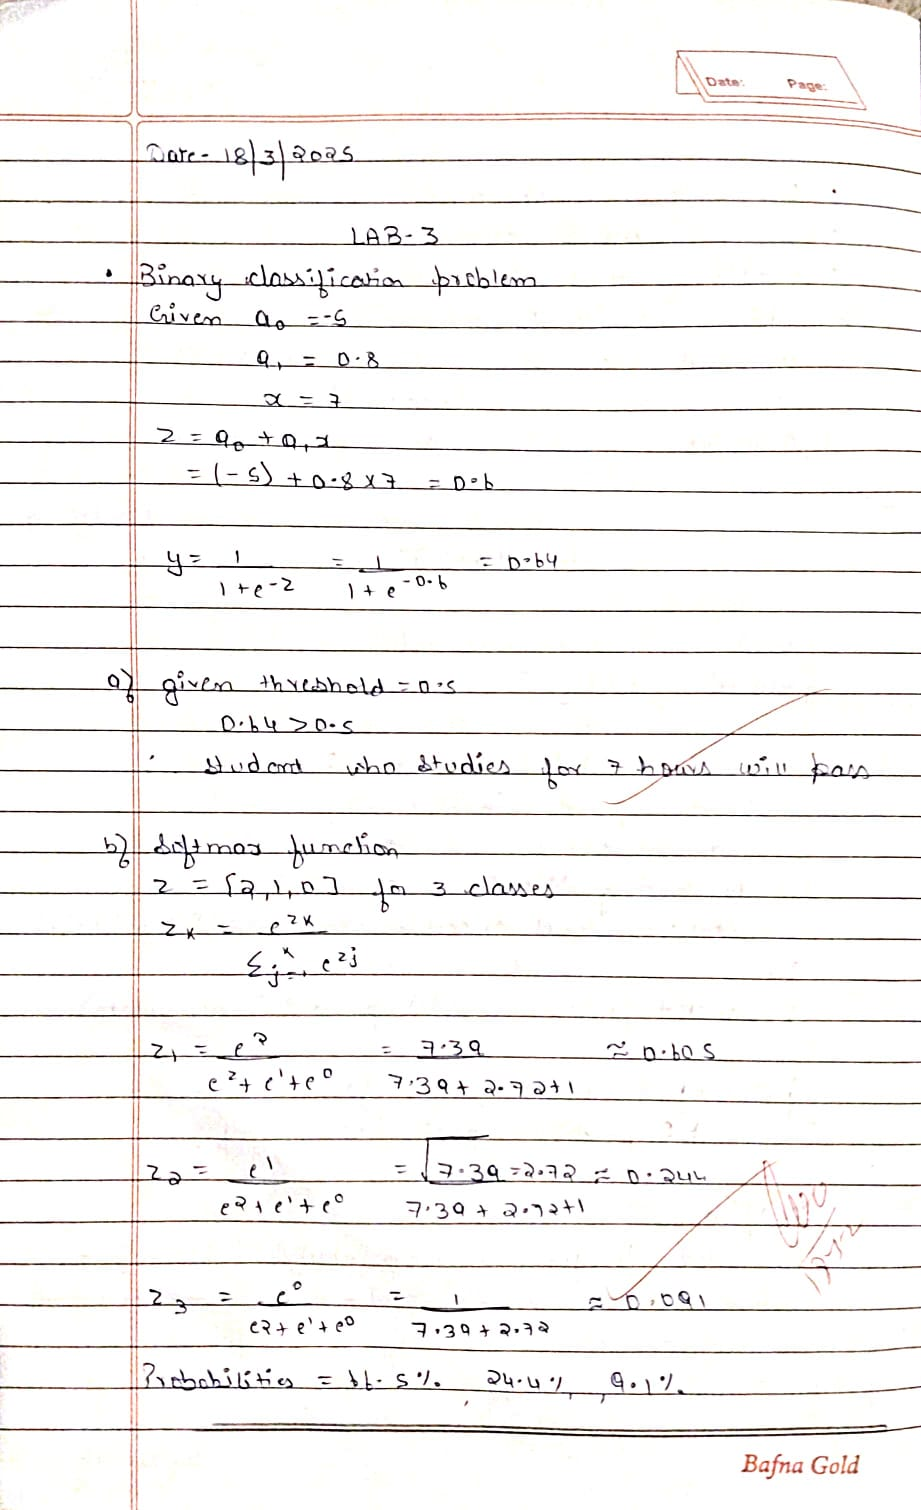 Date: Page:
Date - 18/3/2025
LAB-3
• Binary classification problem
Given a₀ = -5
a₁ = 0.8
x = 7
z = a₀ + a₁x
= (-5) + 0.8 x 7 = 0.6
y = 1 / 1+e^-z = 1 / 1+e^-0.6 = 0.64
a) given threshold = 0.5
0.64 > 0.5
∴ Student who studies for 7 hours will pass
b) Softmax function
z = [2,1,0] for 3 classes
z_k = e^zk / Σ_j=1^k e^zj
z₁ = e^2 / e^2+e^1+e^0 = 7.39 / 7.39+2.72+1 ≈ 0.605
z₂ = e^1 / e^2+e^1+e^0 = √7.39 = 2.72 / 7.39+2.72+1 ≈ 0.244
z₃ = e^0 / e^2+e^1+e^0 = 1 / 7.39+2.72 ≈ 0.091
Probabilities = 66.5%, 24.4%, 9.1%
Bafna Gold